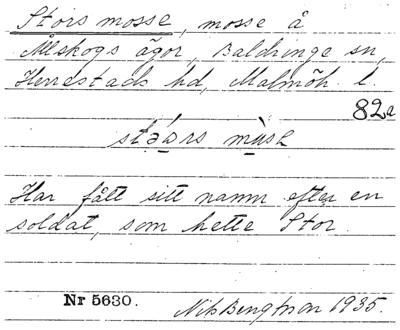 Stors mosse, mosse å
Ålskogs ägor, Baldringe sn,
Herrestads hd, Malmöh. l.
82a
stəərs mùsə
Har fått sitt namn efter en
soldat, som hette Stor.
Nr 5630.
Nils Bengtson 1935.